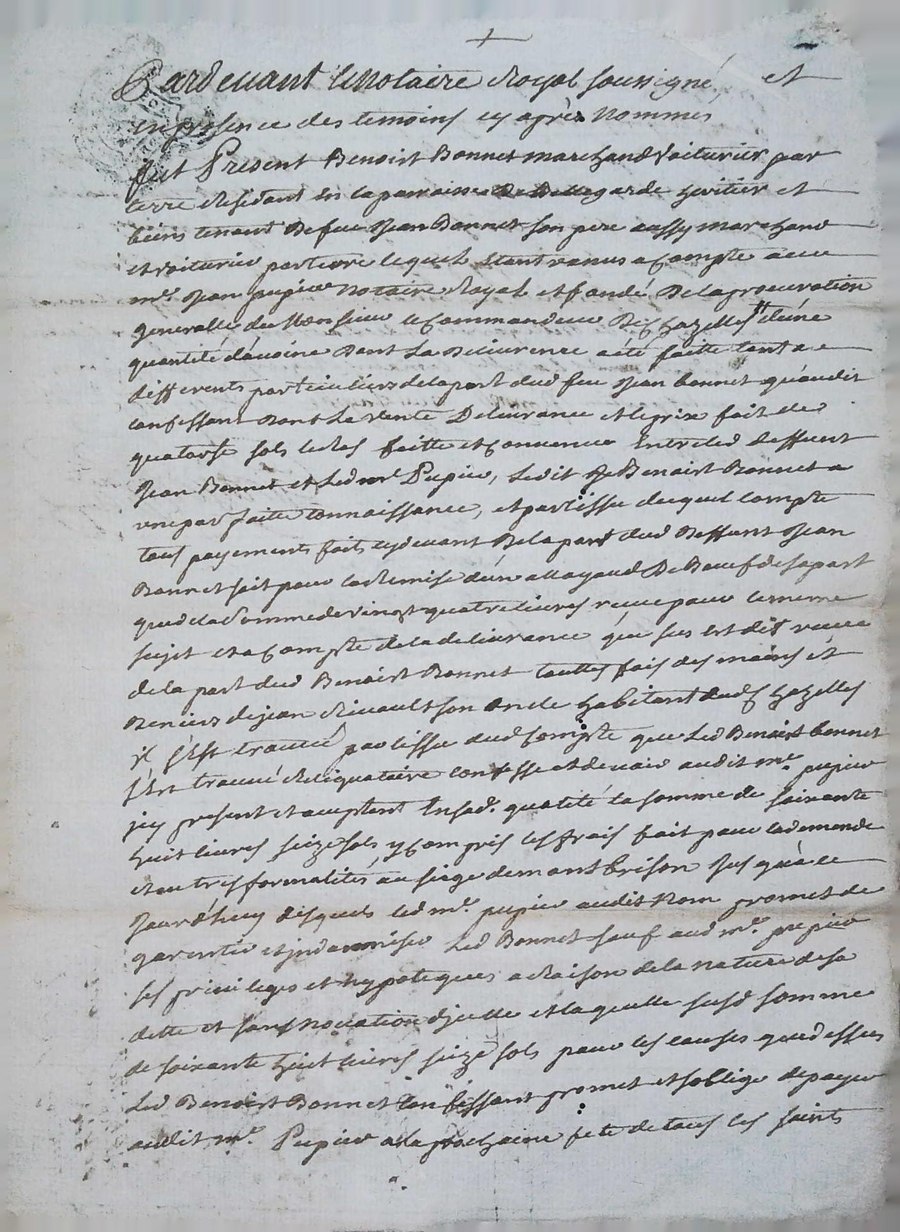 Pardevant le Notaire Royal soussigné, et
en presence des temoins cy après Nommes
fut Present Benoist Bonnet marchand voiturier par
terre Residant en la parroisse de Bellegarde heritier et
biens tenant de feu Jean Bonnet son pere aussy marchand
et voiturier par terre lequel etant venus a Compte avec
mr. Jean pupier Notaire Royal et fondé de la procuration
generalle de Monsieur le Commandeur de Chazelles d'une
quantité d'avoine dont la delivrence a été faitte tant a
differents particuliers de la part dud feu Jean bonnet qu'audit
confessant dont la vente delivrance et le prix fait de
quatorse sols le Ras faitte et convenue Entre led deffunt
Jean Bonnet et led mr. Pupier, ledit Benoist Bonnet a
une parfaite connaissance, et par lissue duquel compte
tous payements faits cy devant de la part dud deffunt Jean
Bonnet soit pour la Remise d'un de Boeuf de sa part
que de la Somme de vingt quatre livres recue pour le meme
sujet et a Compte de la delivrance que sus est dit recue
de la part dud Benoist Bonnet touttes fois des mains et
deniers de jean Rivault son oncle habitant dud Chazelles
il s'est trouvé par lissue dud Compte que led Benoist bonnet
s'est trouvé Reliquataire confesse et devoir audit mr. pupier
icy present et acceptent En sad. qualité la somme de soixante
huit livres seize sols y compris les frais fait pour la demande
et autres formalités au siege de montbrison jus qu'a ce
Jourd'huy desquels led mr. pupier audit Nom promet de
garentir et indamniser led Bonnet sauf aud mr. pupier
ses privileges et hypoteques a Raison de la nature de sa
dette et sans Novation d'jcelle et laquelle susd somme
de soixante huit livres seize sols pour les causes que dessus
led Benoist Bonnet confessant promet et soblige de payer
audit mr. Pupier a la prochaine fete de tous les saints